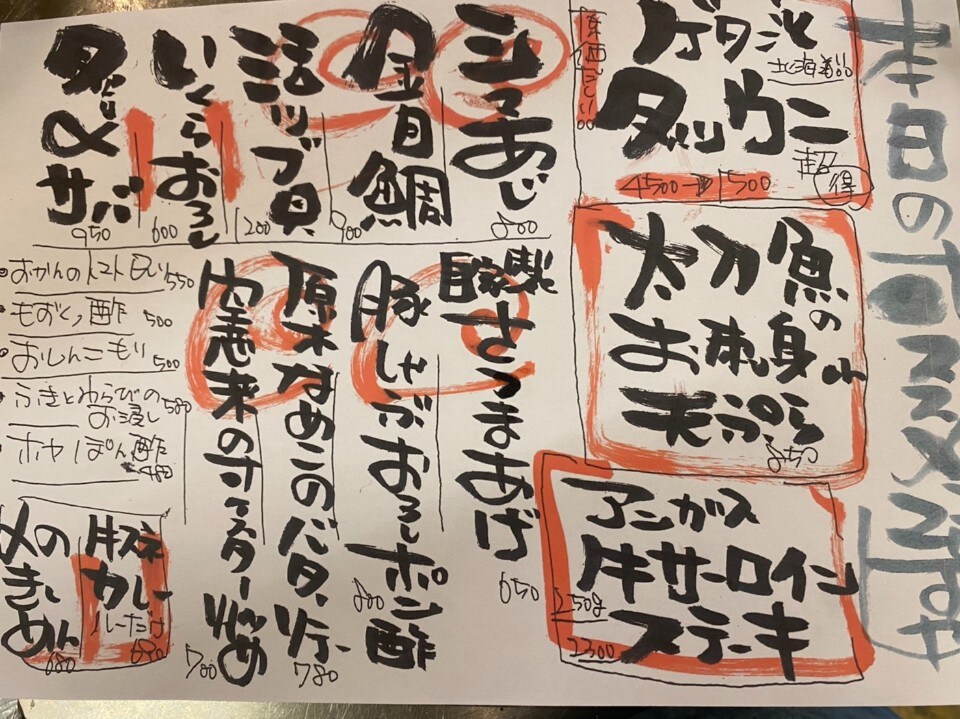 本日の
北海道
ウニ
超得
4500→1500
太刀魚の
お刺身or
天ぷら
850
アンガス
牛サーロイン
ステーキ
250g
2300
シマあじ
800
金目鯛
900
活ツブ貝
いくらおろし
600
サバ
950
燻製さつまあげ
650
豚しゃぶおろしポン酢
800
原木なめこのバターソテー
780
炒め
700
おかんのトマト 550
もずく酢 500
おしんこもり 500
ふきとわらびの
お浸し 580
ホヤぽん酢
480
牛スネ
カレー
ルーだけ
680
〆の
きしめん
680